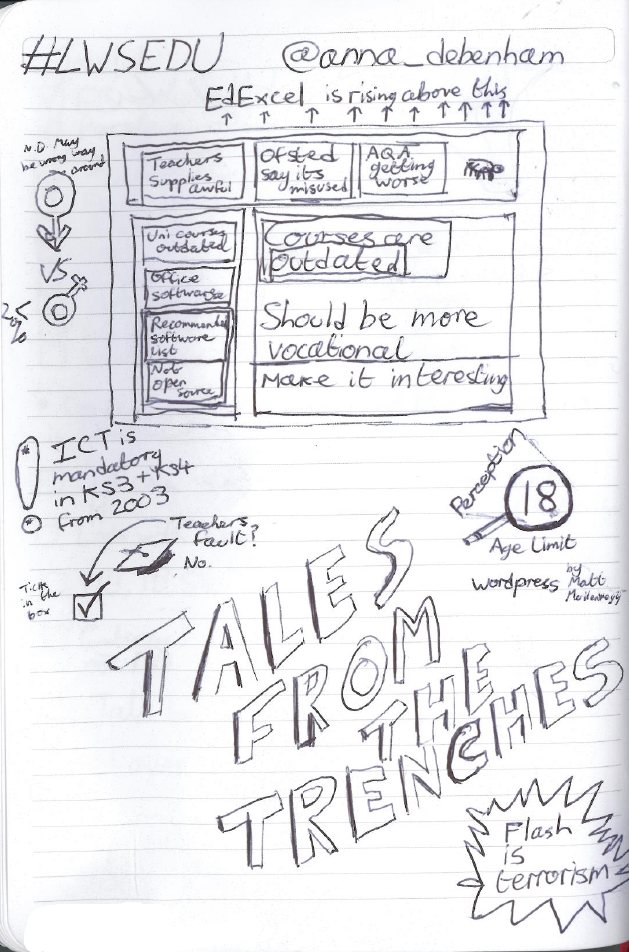 #LWSEDU @anna_debenham
EdExcel is rising above this
N.D. May
be wrong way
around
VS
Teachers
Supplies
awful
Ofsted
say its
misused
AQA
getting
worse
Uni courses
outdated
Office
software
Recommended
software
List
Not
open
source
Courses are
outdated
Should be more
vocational
Make it interesting
ICT is
mandatory
in KS3 + KS4
from 2003
Teachers
fault?
No.
Tick
in the
box
Perception
18
Age Limit
wordpress by
Matt
TALES
FROM
THE
TRENCHES
Flash
is
terrorism